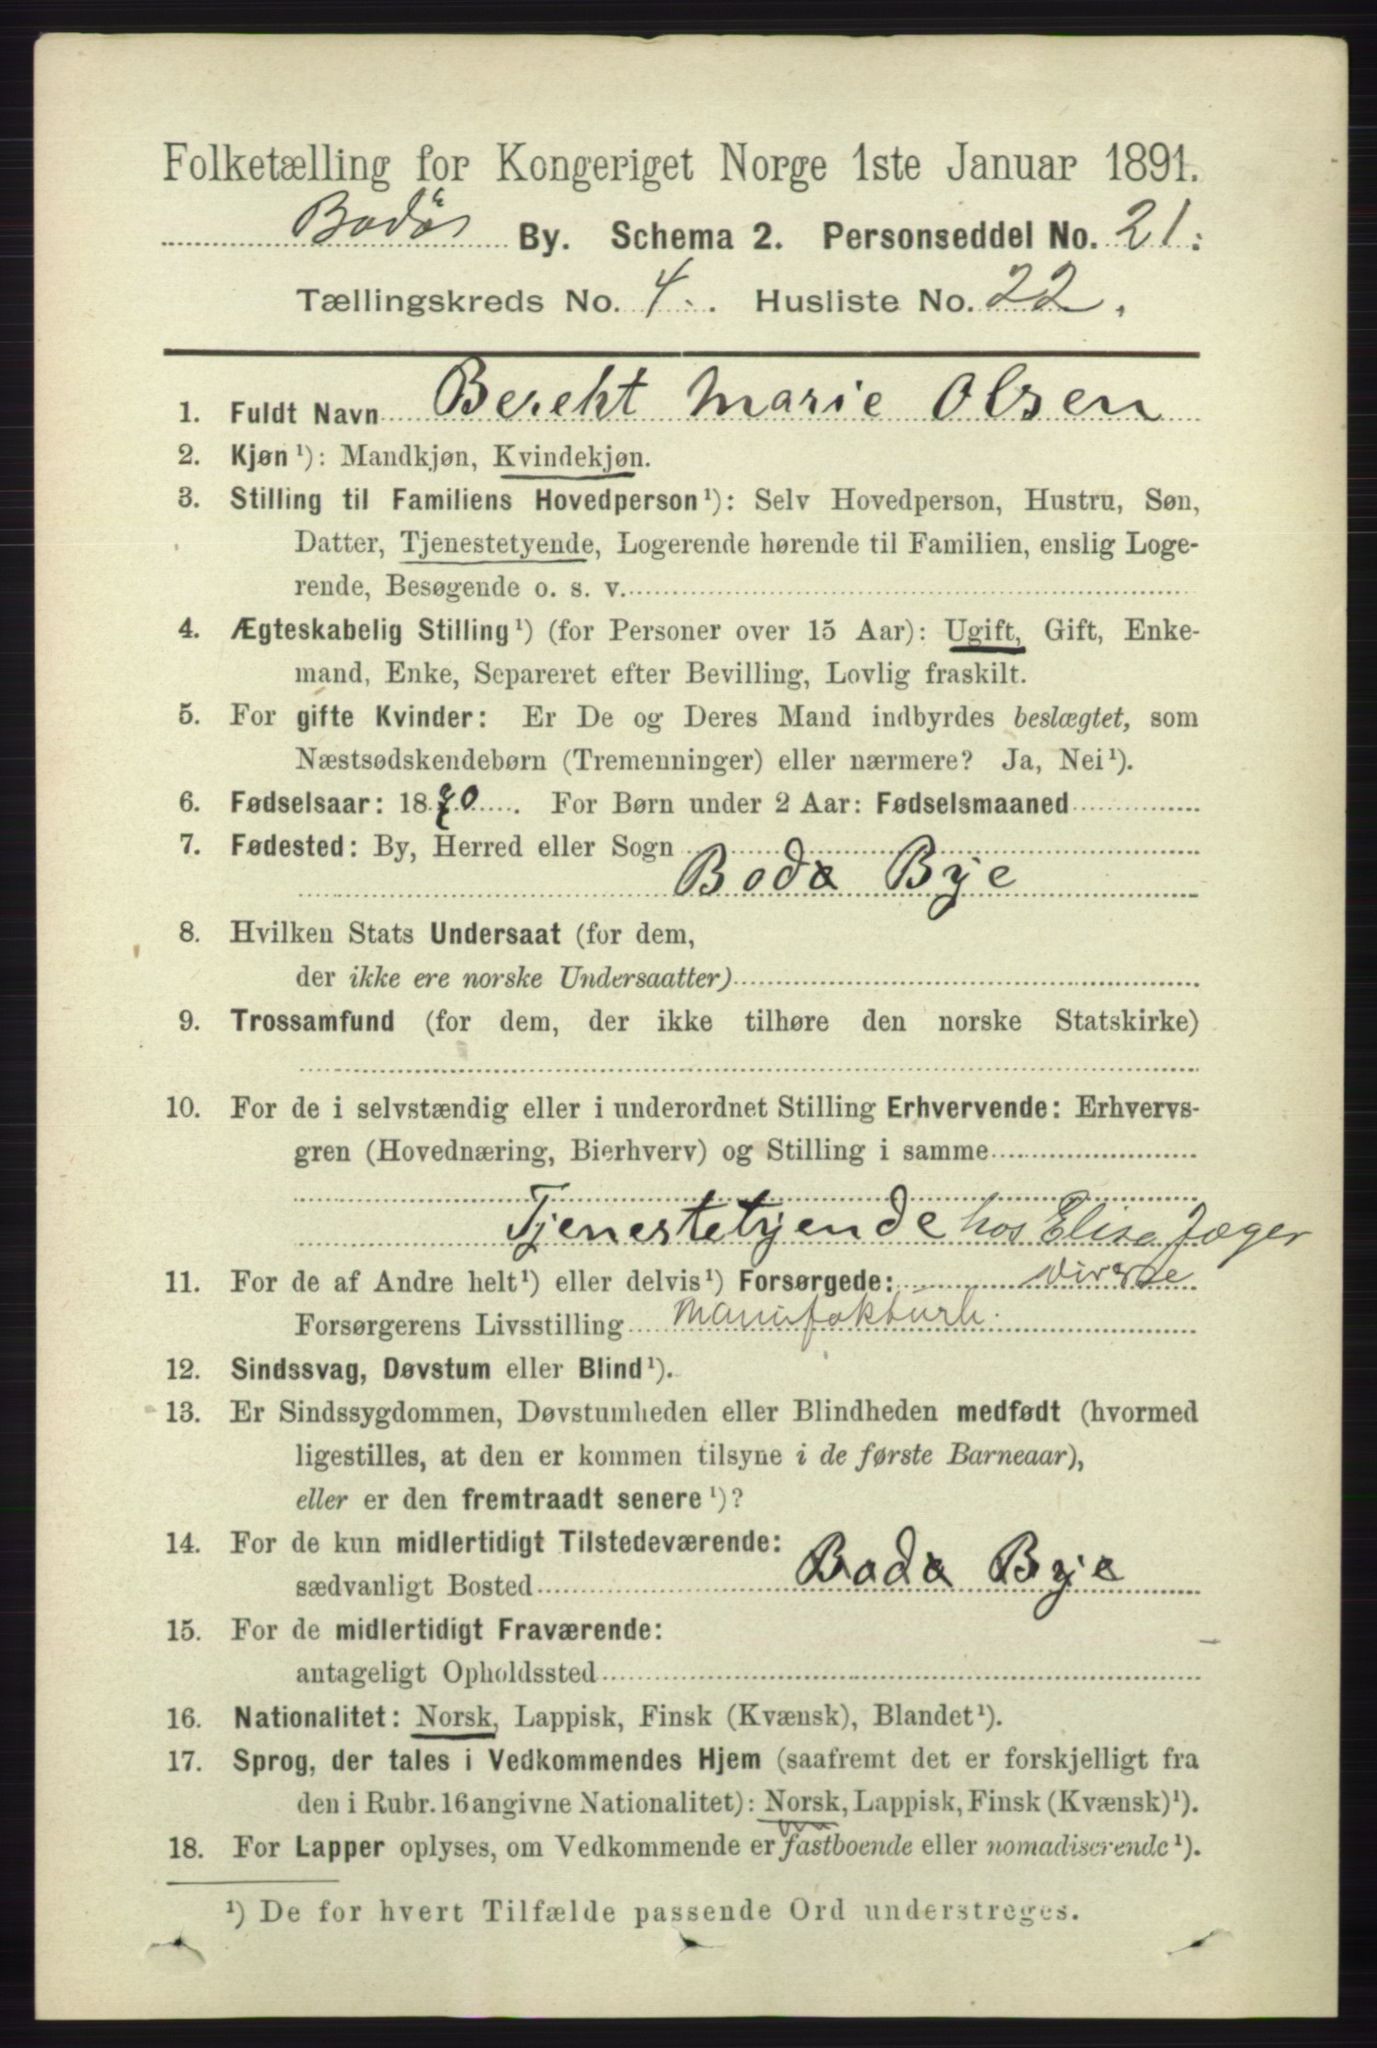 Folketælling for Kongeriget Norge 1ste Januar 1891.
Bodøs By. Schema 2. Personseddel No. 21.
Tællingskreds No. 4. Husliste No. 22.
1. Fuldt Navn Bereht Marie Olsen
2. Kjøn¹): Mandkjøn, Kvindekjøn.
3. Stilling til Familiens Hovedperson¹): Selv Hovedperson, Hustru, Søn,
Datter, Tjenestetyende, Logerende hørende til Familien, enslig Loge-
rende, Besøgende o. s. v.
4. Ægteskabelig Stilling¹) (for Personer over 15 Aar): Ugift, Gift, Enke-
mand, Enke, Separeret efter Bevilling, Lovlig fraskilt.
5. For gifte Kvinder: Er De og Deres Mand indbyrdes beslægtet, som
Næstsødskendebørn (Tremenninger) eller nærmere? Ja, Nei¹).
6. Fødselsaar: 1870. For Børn under 2 Aar: Fødselsmaaned
7. Fødested: By, Herred eller Sogn
Bodø Bye
8. Hvilken Stats Undersaat (for dem,
der ikke ere norske Undersaatter)
9. Trossamfund (for dem, der ikke tilhøre den norske Statskirke)
10. For de i selvstændig eller i underordnet Stilling Erhvervende: Erhvervs-
gren (Hovednæring, Bierhverv) og Stilling i samme
Tjenestetyende hos Elise Jæger
11. For de af Andre helt¹) eller delvis¹) Forsørgede: diverse
Forsørgerens Livsstilling Manufakturh.
12. Sindssvag, Døvstum eller Blind¹).
13. Er Sindssygdommen, Døvstumheden eller Blindheden medfødt (hvormed
ligestilles, at den er kommen tilsyne i de første Barneaar),
eller er den fremtraadt senere¹)?
14. For de kun midlertidigt Tilstedeværende:
sædvanligt Bosted Bodø Bye
15. For de midlertidigt Fraværende:
antageligt Opholdssted
16. Nationalitet: Norsk, Lappisk, Finsk (Kvænsk), Blandet¹).
17. Sprog, der tales i Vedkommendes Hjem (saafremt det er forskjelligt fra
den i Rubr. 16 angivne Nationalitet): Norsk, Lappisk, Finsk (Kvænsk)¹).
18. For Lapper oplyses, om Vedkommende er fastboende eller nomadiserende¹).
¹) De for hvert Tilfælde passende Ord understreges.